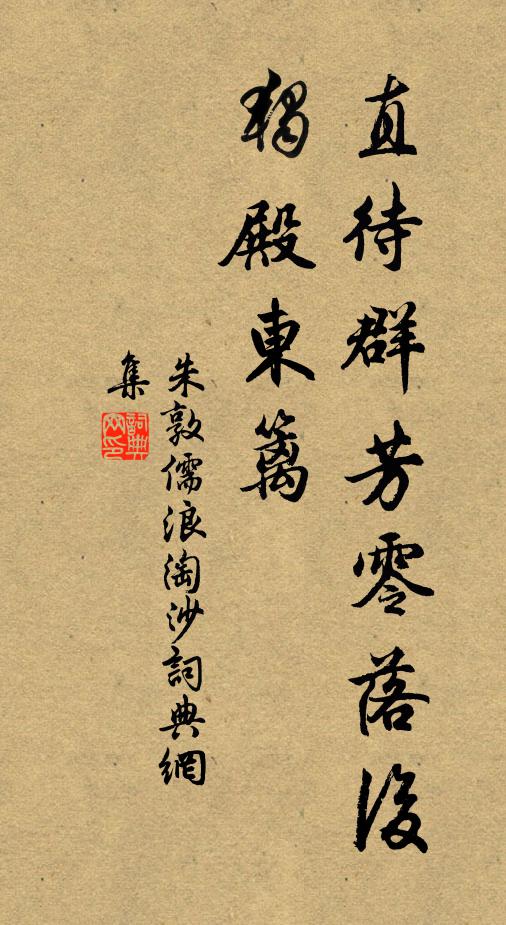 直待群芳零落後
獨殿東籬
朱敦儒浪淘沙詞典網
集
詞典網印